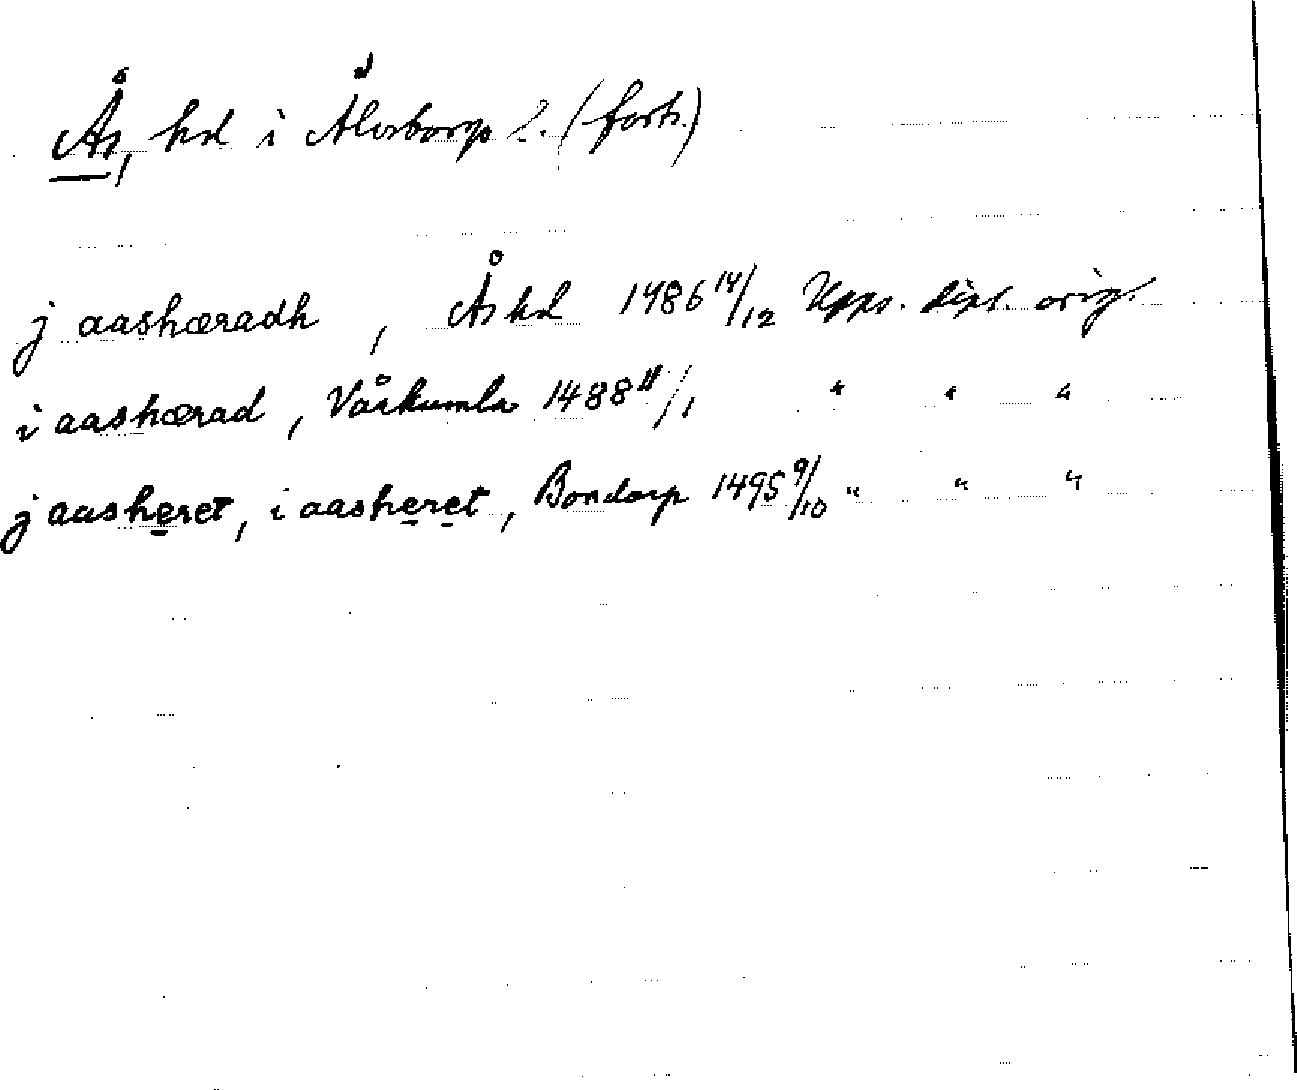 Ås, hd i Älvsborgs l. (forts.)
j aashæradh , Ås hd 1486 14/12 Upps. dipl. orig.
i aashærad , Vårkumla 1488 11/1 " " "
j aasheret, i aasheret, Bondarp 1495 9/10 " " "